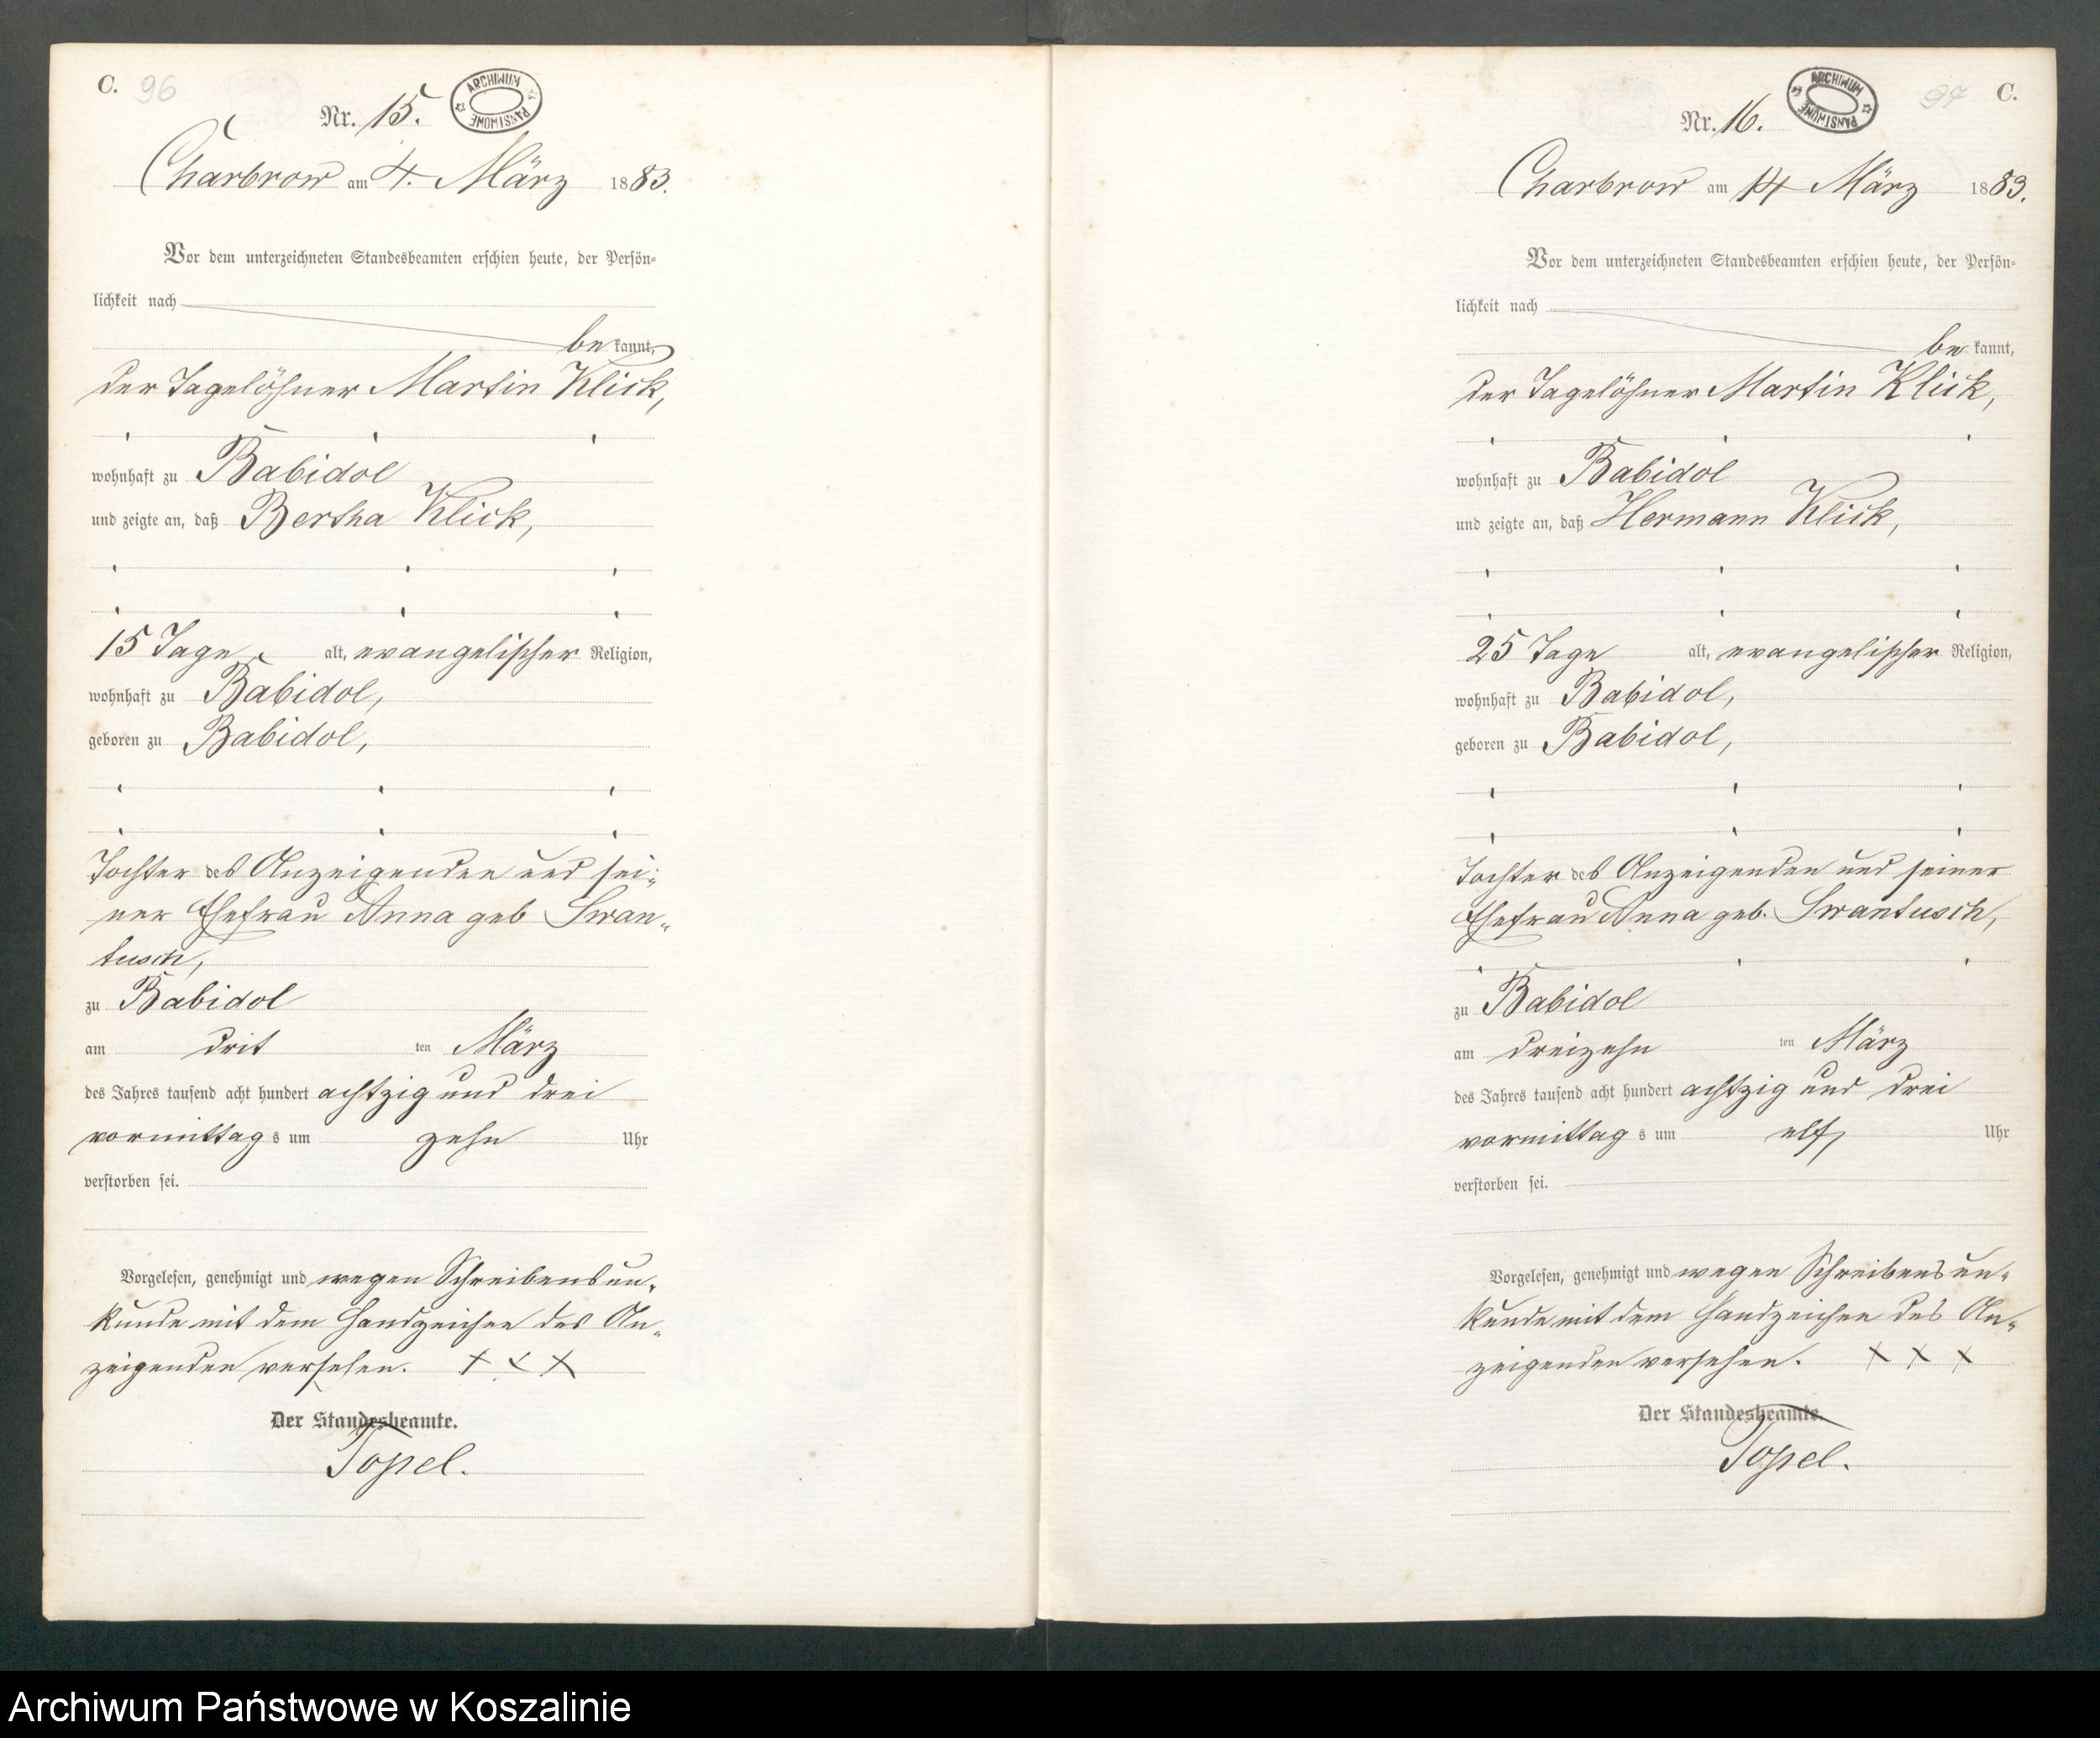 C. 96
Nr. 15.
ARCHIWUM PAŃSTWOWE
Charbrow am 4. März 1883.
Vor dem unterzeichneten Standesbeamten erschien heute, der Persön-
lichkeit nach
be kannt,
der Tagelöhner Martin Klick,
wohnhaft zu Babidol
und zeigte an, daß Bertha Klick,
15 Tage alt, evangelischer Religion,
wohnhaft zu Babidol,
geboren zu Babidol,
Tochter des Anzeigenden und sei-
ner Ehefrau Anna geb Swan-
tusch,
zu Babidol
am drit ten März
des Jahres tausend acht hundert achtzig und drei
vormittag s um zehn Uhr
verstorben sei.
Vorgelesen, genehmigt und wegen Schreibensun-
kunde mit dem Handzeichen des An-
zeigenden versehen. + + +
Der Standesbeamte.
Topel.
97 C.
Nr. 16.
ARCHIWUM PAŃSTWOWE
Charbrow am 14 März 1883.
Vor dem unterzeichneten Standesbeamten erschien heute, der Persön-
lichkeit nach
be kannt,
der Tagelöhner Martin Klick,
wohnhaft zu Babidol
und zeigte an, daß Hermann Klick,
25 Tage alt, evangelischer Religion,
wohnhaft zu Babidol,
geboren zu Babidol,
Tochter des Anzeigenden und seiner
Ehefrau Anna geb. Swantusch,
zu Babidol
am dreizehn ten März
des Jahres tausend acht hundert achtzig und drei
vormittag s um elf Uhr
verstorben sei.
Vorgelesen, genehmigt und wegen Schreibensun-
kunde mit dem Handzeichen des An-
zeigenden versehen. x x x
Der Standesbeamte.
Topel.
Archiwum Państwowe w Koszalinie